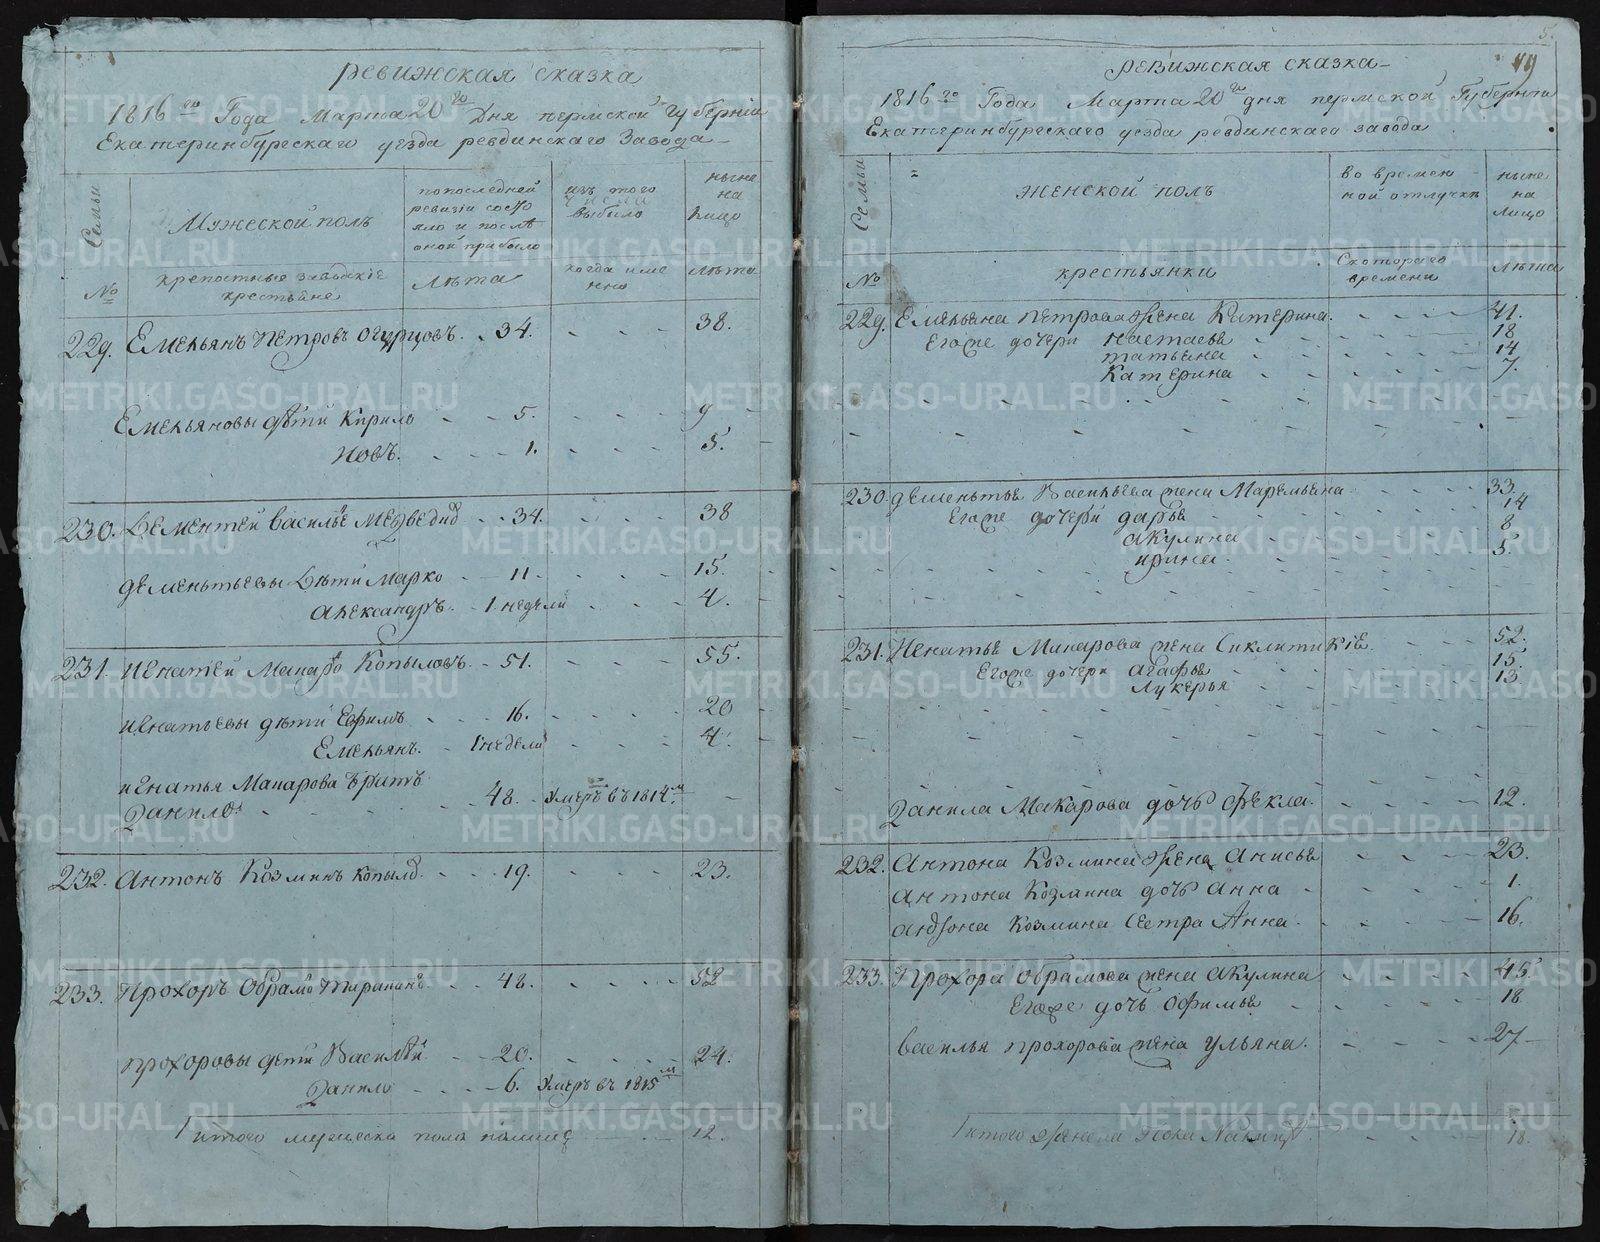 ревижская сказка
1816 го Года Марта 20 го Дня пермской Губерніи
Екатеринбургскаго уезда ревдинскаго Завода
Семьи
Мужеской полъ
по последней
ревизіи состо
яло и послѣ
оной прибыло
изъ того
числа
выбыло
ныне
на
лицо
№
крепостные заводскіе
крестьяне
лѣта
когда име
нно
лѣта
229. Емельянъ Петровъ Огурцовъ. 34. 38.
Емельяновы дѣти Кирило 5. 9
Иовъ. 1. 5.
230. Дементей Василье Медведе 34. 38
Дементьевы Дѣти Марко 11. 15.
Александръ. 1 недели 4.
231. Игнатей Макаро Копыловъ. 51. 55.
Игнатьевы дѣти Ефимъ 16. 20
Емельянъ. 1 недели 4.
Игнатья Макарова братъ
Данило. 48. Умеръ въ 1814 м
232. Антонъ Козминъ Копыло. 19. 23.
233. Прохоръ Обрамо 48. 52
Прохоровы дети Василей 20. 24.
Данило 6. Умеръ въ 1815 м
итого мужеска пола 12.
5.
49
ревижская сказка
1816 го Года Марта 20 го дня пермской Губерніи
Екатеринбургскаго уезда ревдинскаго завода
Семьи
женской полъ
во времен
ной отлучкѣ
ныне
на
лицо
№
крестьянки
С котораго
времени
лѣта
229. Емельяна Петрова Жена Катерина. 41.
Егоже дочери Настасья 18
татьяна 14
Катерина 7.
230. Дементья Васильева жена Маремьяна 33.
Егоже дочери Дарья 14
акулина 8
ирина. 5.
231. Игнатья Макарова жена Сиклитикіе 52.
Егоже дочери агафья 15.
Лукерья 13
Данила Макарова дочь Фекла. 12.
232. Антона Козмина Жена Анисья 23.
Антона Козмина дочь Анна 1.
Антона Козмина Сестра Анна. 16.
233. Прохора Обрамова жена акулина 45
Егоже дочь Офимья 18
Василья Прохорова жена Ульяна. 27
итого Женска пола 18.
METRIKI.GASO-URAL.RU